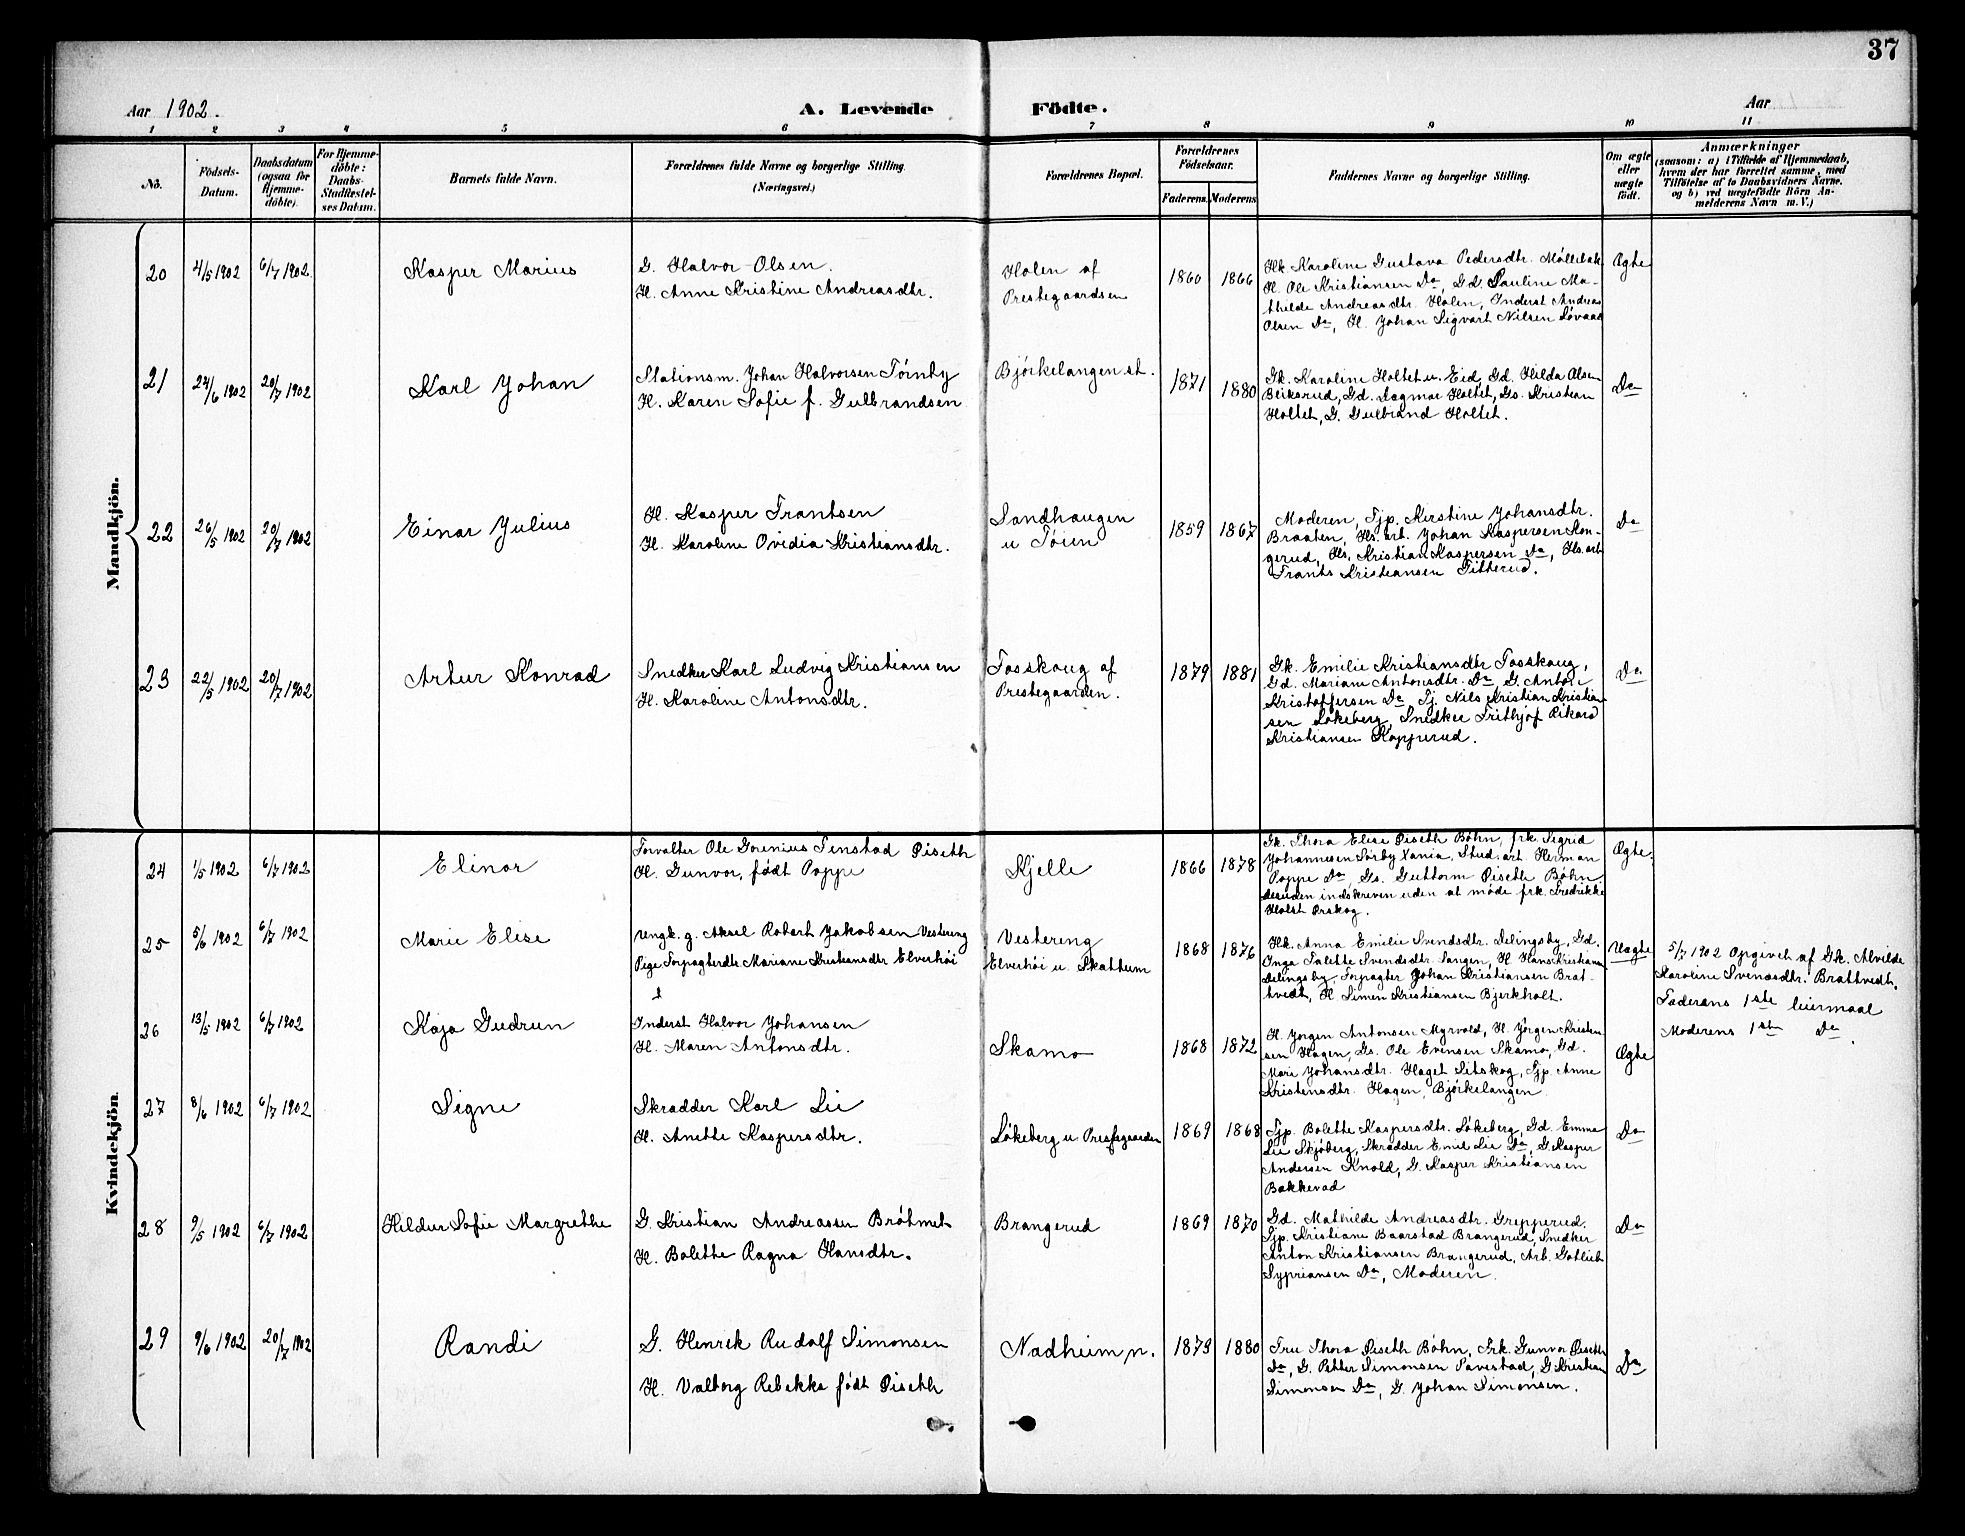 37
Aar 1902.
A. Levende Födte.
Aar
1 2 3 4 5 6 7 8 9 10 11
No.
Födsels-
Datum.
Daabsdatum
(ogsaa for
Hjemme-
döbte).
For Hjemme-
döbte:
Daabs-
Stadfæstel-
ses Datum.
Barnets fulde Navn.
Forældrenes fulde Navne og borgerlige Stilling.
(Næringsvei.)
Forældrenes Bopæl.
Forældrenes
Födselsaar.
Faderens.
Moderens.
Faddernes Navne og borgerlige Stilling.
Om ægte
eller
uægte
födt.
Anmærkninger
(saasom: a) i Tilfælde af Hjemmedaab,
hvem der har forrettet samme, med
Tilföielse af to Daabsvidners Navne,
og b) ved uægtefödte Börn An-
melderens Navn m. V.)
Mandkjön.
20 4/5 1902 6/7 1902. Kasper Marius
G. Halvor Olsen.
H. Anne Kristine Andreasdtr.
Holen af
Prestegaardsen
1860 1866
Hk. Karoline Gustava Pedersdtr. Møllebak
H. Ole Kristiansen Do, Gd. Pauline Ma-
thilde Andreasdtr. Holen, Inderst Andreas
Olsen Do, H. Johan Sigvart Nilsen Lovaas
Ægte
21 24/6 1902 20/7 1902 Karl Johan
Stationsm. Johan Halvorsen Tørnby
H. Karen Sofie f. Gulbrandsen
Bjørkelangen st.
1871 1880
Gk. Karoline Holtet u. Eid, Gd. Hilda Olsen
Beiksrud, Gd. Dagmar Holtet, Gs. Kristian
Holtet, G. Gulbrand Holtet.
Do
22 26/5 1902 20/7 1902 Einar Julius
H. Kasper Frantsen
H. Karoline Ovidia Kristiansdtr.
Sandhaugen
u Tøien
1859 1867
Moderen, Tjp. Kirstine Johansdtr.
Braaten, Hs. arb. Johan Kaspersen Kon-
gerud, Hs. Kristian Kaspersen Do, Hs. arb
Frants Kristiansen Fitterud.
Do
23 22/5 1902 20/7 1902 Artur Konrad
Snedker Karl Ludvig Kristiansen
H. Karoline Antonsdtr.
Fosskaug af
Prestegaarden.
1879 1881
Gk. Emilie Kristiansdtr Fosskaug,
Gd. Mariane Antonsdtr. Do G. Anton
Kristoffersen Do Tj. Nils Kristian Kristian-
sen Løkeberg, Snedker Fritjof Rikard
Kristiansen Kopperud.
Do
Kvindekjön.
24 1/5 1902 6/7 1902 Elinor
Forvalter Ole Gorenius Finstad Diseth
H. Gunvor, født Poppe
Kjelle
1866 1878
Gk. Thora Elise Diseth Bøhn, frk. Sigrid
Johannesen Sørby Xania, Stud. art. Herman
Poppe Do Gs. Guttorm Diseth Bøhn
desuden indskreven uden at møde frk. Fredrikke
Holst Orskog.
Ægte.
25 5/6 1902 6/7 1902 Marie Elise
Ungk. g. Aksel Robert Jakobsen Vestereng
Pige Forpagterdtr Mariane Kristiansdtr Elverhöi
Vestereng
Elverhöi u. Skattum
1868 1876
Hk. Anna Emilie Svendsdtr. Delingsby, Gd.
Inga Talette Svendsdtr. Tangen, H. Hans Kristiansen
Delingsby, Forpagter Johan Kristiansen Brat-
tvedt, H. Simen Kristiansen Bjerkholt.
Uægte
5/7 1902 Opgivet af Gk. Alvilde
Karoline Svendsdtr. Brattvedt.
Faderens 1ste leiermaal
Moderens 1ste Do.
26 13/5 1902 6/7 1902 Kaja Gudrun
Inderst Halvor Johansen
H. Maren Antonsdtr.
Skamo
1868 1872
H. Jørgen Antonsen Myrvold, H. Jørgen Kristen-
sen Hagen, Gs. Ole Evensen Skamo, Gd.
Mari Johansdtr. Haget Setskog, Tjp. Anne
Kristensdtr. Hagen, Bjørkelangen
Ægte
27 8/6 1902 6/7 1902 Signe
Skrædder Karl Lie
H. Anette Kaspersdtr.
Løkeberg u Prestegaarden
1869 1868
Tjp. Bolette Kaspersdtr. Løkeberg, Gd. Emma
Lie Skjøberg, Skrædder Emil Lie Do, G. Kasper
Andersen Knold, G. Kasper Kristiansen
Bakkerud
Do
28 9/5 1902 6/7 1902 Hildur Sofie Margrethe
G. Kristian Andreassen Brøhnet
H. Bolette Ragna Hansdtr.
Brangerud
1869 1870
Gd. Mathilde Andreasdtr. Grepperud.
Tjp. Kristiane Baarstad Brangerud, Snedker
Anton Kristiansen Brangerud, Arb. Gotlieb
Sypriansen Do, Moderen.
Do
29 9/6 1902 20/7 1902 Randi
G. Henrik Rudolf Simonsen
H. Valborg Rebekka født Diseth
Nadheim n.
1873 1880
Fru Thora Diseth Bøhn, Frk. Gunvor Diseth
Do, G. Petter Simonsen Tavestad, G Kristian
Simonsen Do, G. Johan Simonsen.
Do